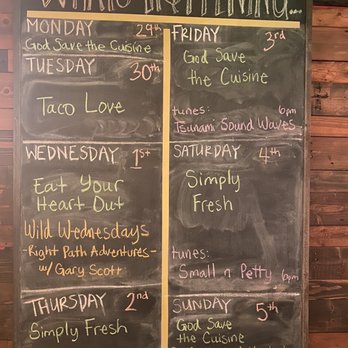 WHAT'S HAPPENING...
MONDAY 29th
God Save the Cuisine
TUESDAY 30th
Taco Love
WEDNESDAY 1st
Eat Your
Heart Out
Wild Wednesdays
- Right Path Adventures -
w/ Gary Scott
THURSDAY 2nd
Simply Fresh
FRIDAY 3rd
God Save
the Cuisine
tunes: 6pm
Tsunami Sound Waves
SATURDAY 4th
Simply
Fresh
tunes:
Small n Petty 6pm
SUNDAY 5th
God Save
the Cuisine